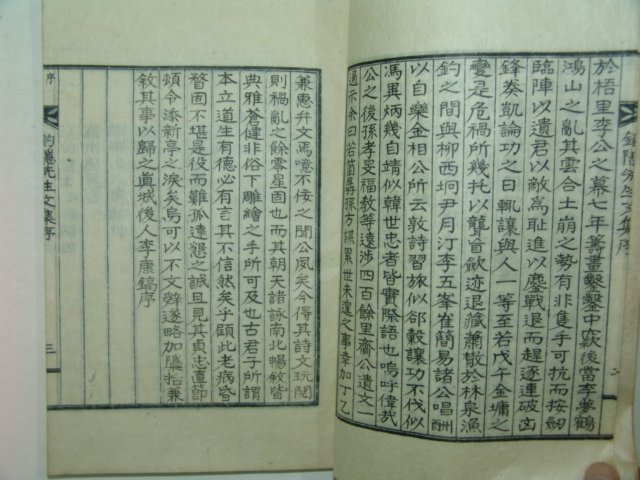 於梧里李公之幕七年籌畫鑿鑿中窾後當李夢鶴
鴻山之亂其雲合土崩之勢有非隻手可抗而按劒
臨陣以遺君以敵爲恥進以鏖戰退而趕逐連破凶
鋒奏凱論功之日輒讓與人一等至若戊午金墉之
變是危禍所幾托以聾盲歛迹退藏蕭散於林泉漁
釣之間與柳西坰尹月汀李五峯崔簡易諸公唱酬
以自樂金相公所云敦詩習旅似郤縠讓功不伐似
馮異炳幾自靖似韓世忠者皆實際語也嗚呼偉哉
公之後孫孝旻福敎等遠涉四百餘里齎公遺文一
通示余曰若箇孱孫方謀累世未遑之事幸加丁乙
二
兼惠弁文焉噫不佞之聞公夙矣今得其詩文玩閱
則禍亂之餘零星固也而其朝天諸詠南北暢敘皆
典雅蒼健非俗下雕繪之手所可及也古君子所謂
本立道生有德必有言其不信然矣乎顧此老病昏
瞀固不堪是役而難孤遠懇之誠且見其貞忠直節
煩令添新亭之淚矣烏可以不文辭遂略加檃括兼
敘其事以歸之眞城後人李康鎬序
釣隱先生文集序
三
序